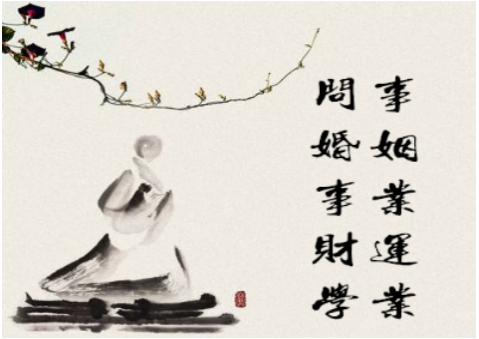 問事
婚姻
事業
財運
學業